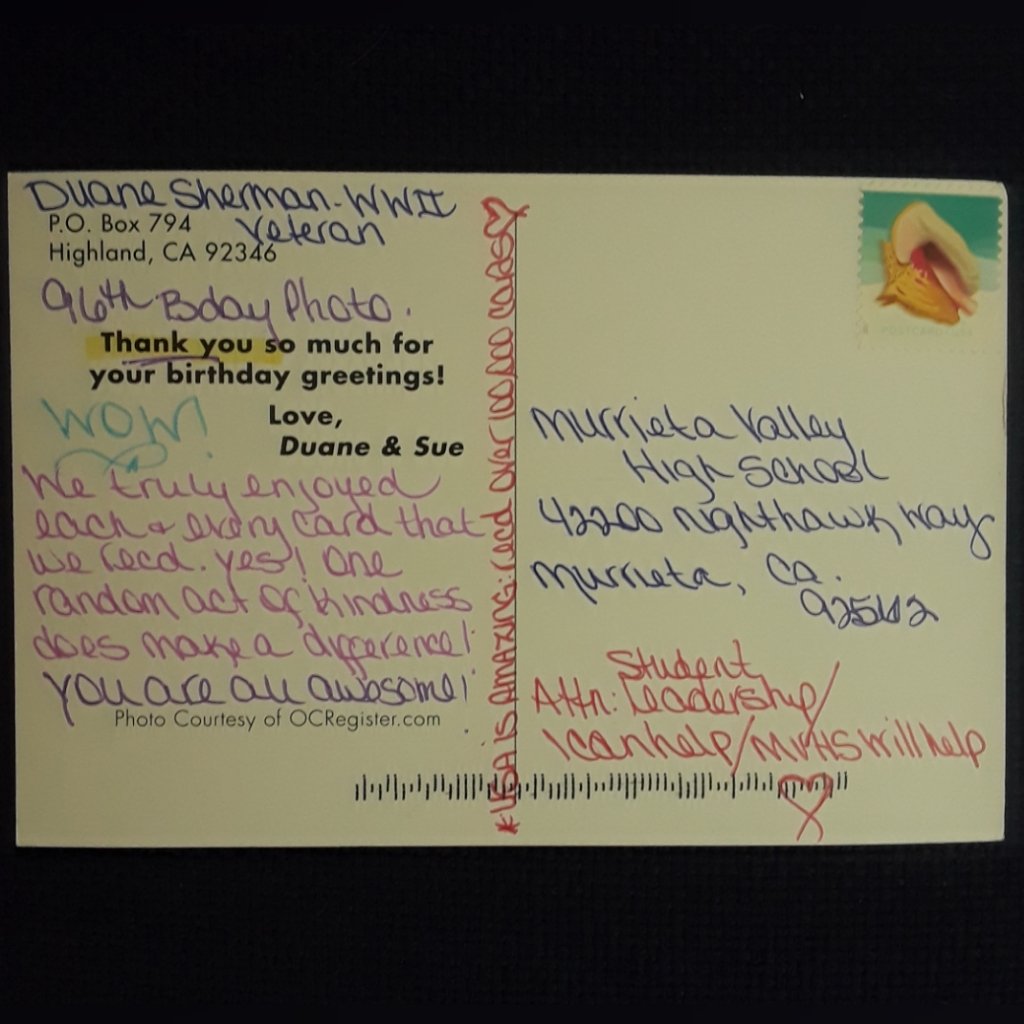 Duane Sherman-WWII
Veteran
P.O. Box 794
Highland, CA 92346
96th Bday Photo.
Thank you so much for
your birthday greetings!
Love,
Duane & Sue
WOW!
We truly enjoyed
each & every card that
we recd. yes! One
random act of kindness
does make a difference!
you are all awesome!
Photo Courtesy of OCRegister.com
*USA is AMAZING: recd over 100,000 cards♡
Murrieta Valley
High School
42200 Nighthawk Way
Murrieta, Ca.
92562
Student
Attn: Leadership/
icanhelp/MVHS will help